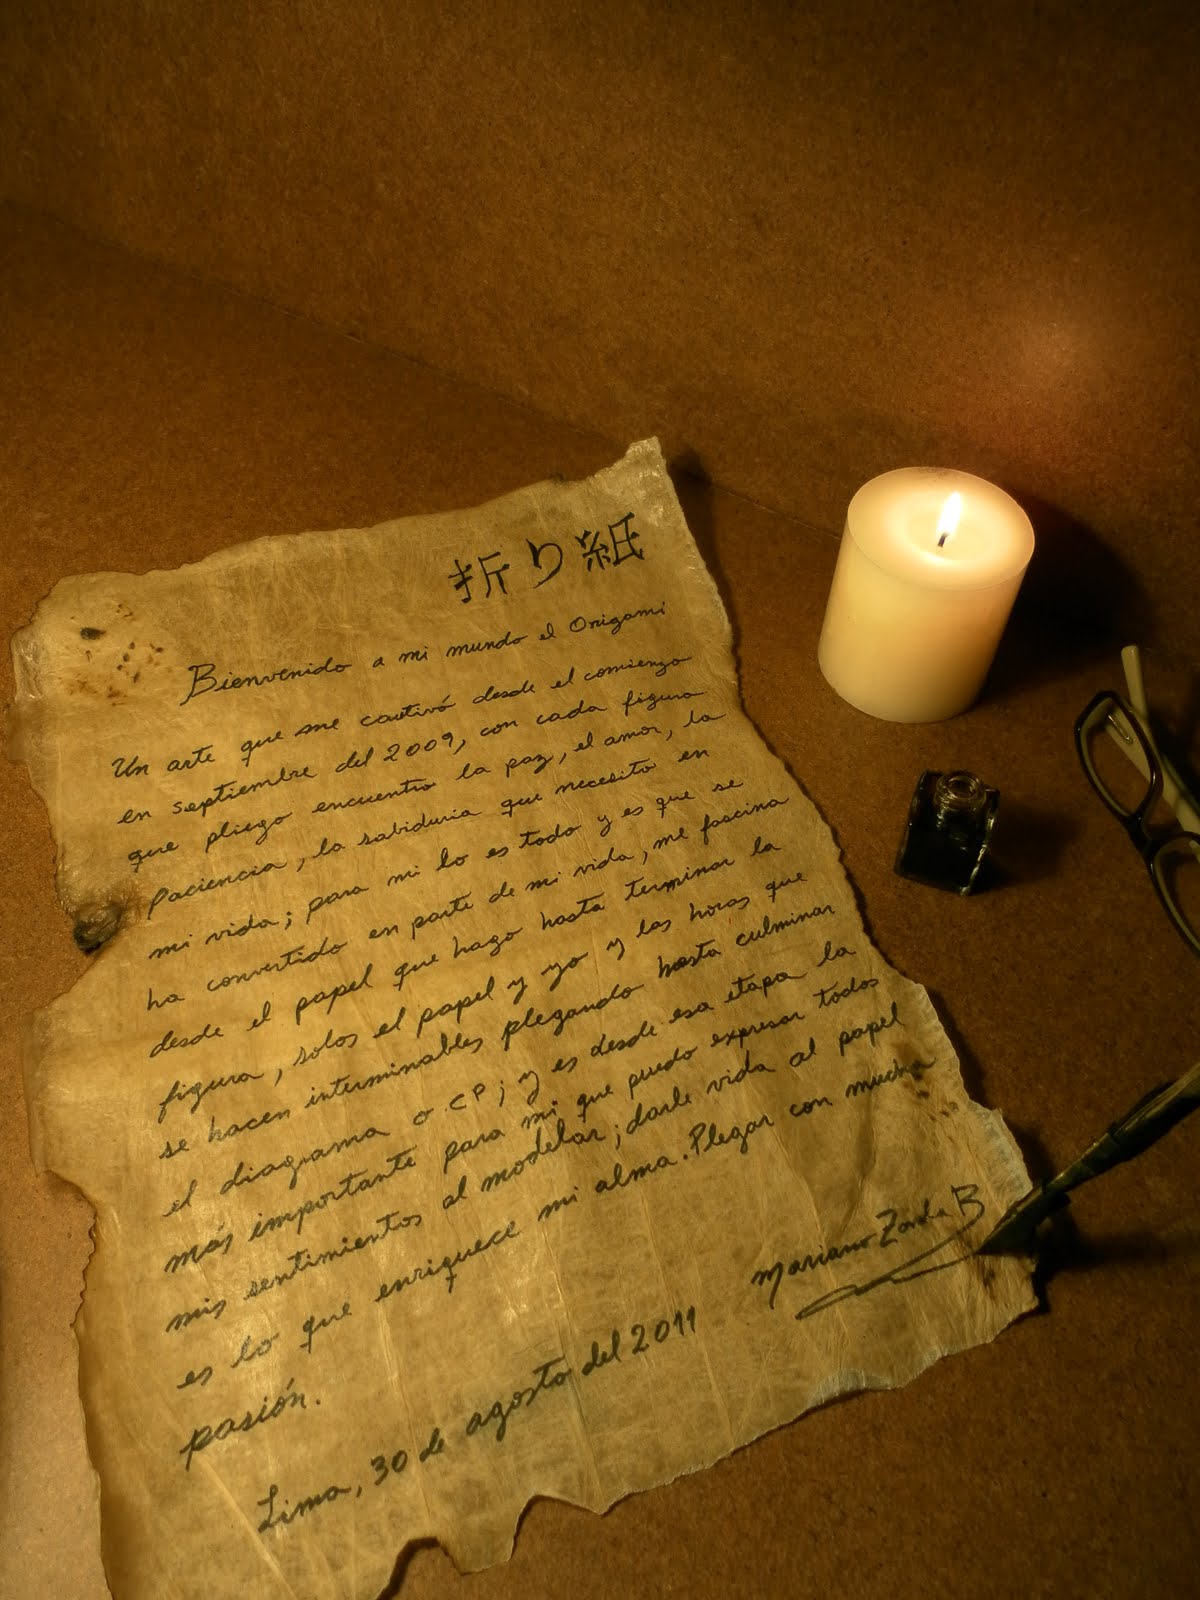 折り紙
Bienvenido a mi mundo el Origami
Un arte que me cautivó desde el comienzo
en septiembre del 2009, con cada figura
que pliego encuentro la paz, el amor, la
paciencia, la sabiduria que necesito en
mi vida; para mi lo es todo y es que se
ha convertido en parte de mi vida, me fascina
desde el papel que hago hasta terminar la
figura, solos el papel y yo y las horas que
se hacen interminables plegando hasta culminar
el diagrama o CP; y es desde esa etapa la
más importante para mi que puedo expresar todos
mis sentimientos al modelar; darle vida al papel
es lo que enriquece mi alma. Plegar con mucha
pasión.
Mariano Zavala B
Lima, 30 de agosto del 2011